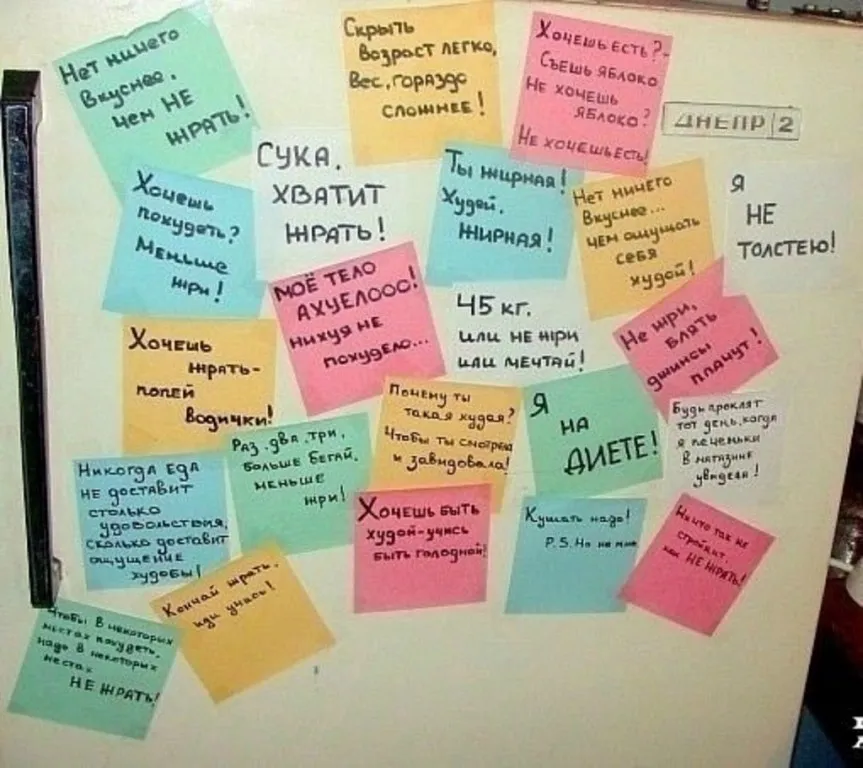 Нет ничего
вкуснее,
чем НЕ
ЖРАТЬ!
Скрыть
возраст легко,
вес, гораздо
сложнее!
Хочешь есть?-
Съешь яблоко
Не хочешь
яблоко?
Не хочешь есть!
ДНЕПР 2
Хочешь
похудеть?
Меньше
жри!
СУКА,
ХВАТИТ
ЖРАТЬ!
Ты жирная!
Худей,
ЖИРНАЯ!
Нет ничего
вкуснее...
чем ощущать
себя
худой!
Я
НЕ
ТОЛСТЕЮ!
МОЁ ТЕЛО
АХУЕЛООО!
нихуя не
похудело...
45 кг.
или НЕ ЖРИ
или МЕЧТАЙ!
Не жри,
блять
джинсы
плачут!
Хочешь
жрать-
попей
водички!
Раз, два, три,
больше бегай,
меньше
жри!
Почему ты
такая худая?
Чтобы ты смотрела
и завидовала!
Я
НА
ДИЕТЕ!
Будь проклят
тот день, когда
я печеньки
в магазине
увидела!
Никогда ЕДА
НЕ доставит
столько
удовольствия,
сколько доставит
ощущение
худобы!
Хочешь быть
худой-учись
быть голодной!
Кушать надо!
P.S. Но не мне
Ничто так не
стройнит...
как НЕ ЖРАТЬ!
Кончай жрать,
иди учись!
Чтобы в некоторых
местах похудеть,
надо в некоторых
местах
НЕ ЖРАТЬ!